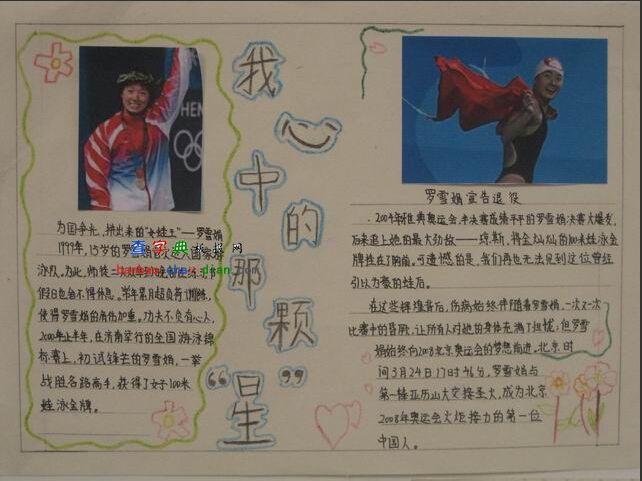 我心中的那颗“星”
为国争光,拼出来的“女蛙王”——罗雪娟
1997年,15岁的罗
游泳队。为此,
假日也会不得休息。常年累月超负荷训练,
使得罗雪娟的肩伤加重,功夫不负有心人,
2000年上半年,在济南举行的全国游泳锦
标赛上,初试锋芒的罗雪娟,一举
战胜各路高手,获得了女子100米
蛙泳金牌。
查字典手抄报网
罗雪娟宣告退役
2004年雅典奥运会,半决赛成绩平平的罗雪娟决赛大爆发,
后来追上她的最大劲敌——琼斯,将金灿灿的100米蛙泳金
牌挂在了胸前。可遗憾的是,我们再也无法见到这位曾经
引以为豪的蛙后。
在这些辉煌背后,伤病始终伴随着罗雪娟,一次又一次
比赛中的昏厥,让所有人对她的身体充满了担忧;但罗雪
娟始终向2008北京奥运会的梦想前进。北京时
间3月24日17时46分,罗雪娟与
第一棒亚历山大交接圣火,成为北京
2008年奥运会火炬接力的第一位
中国人。